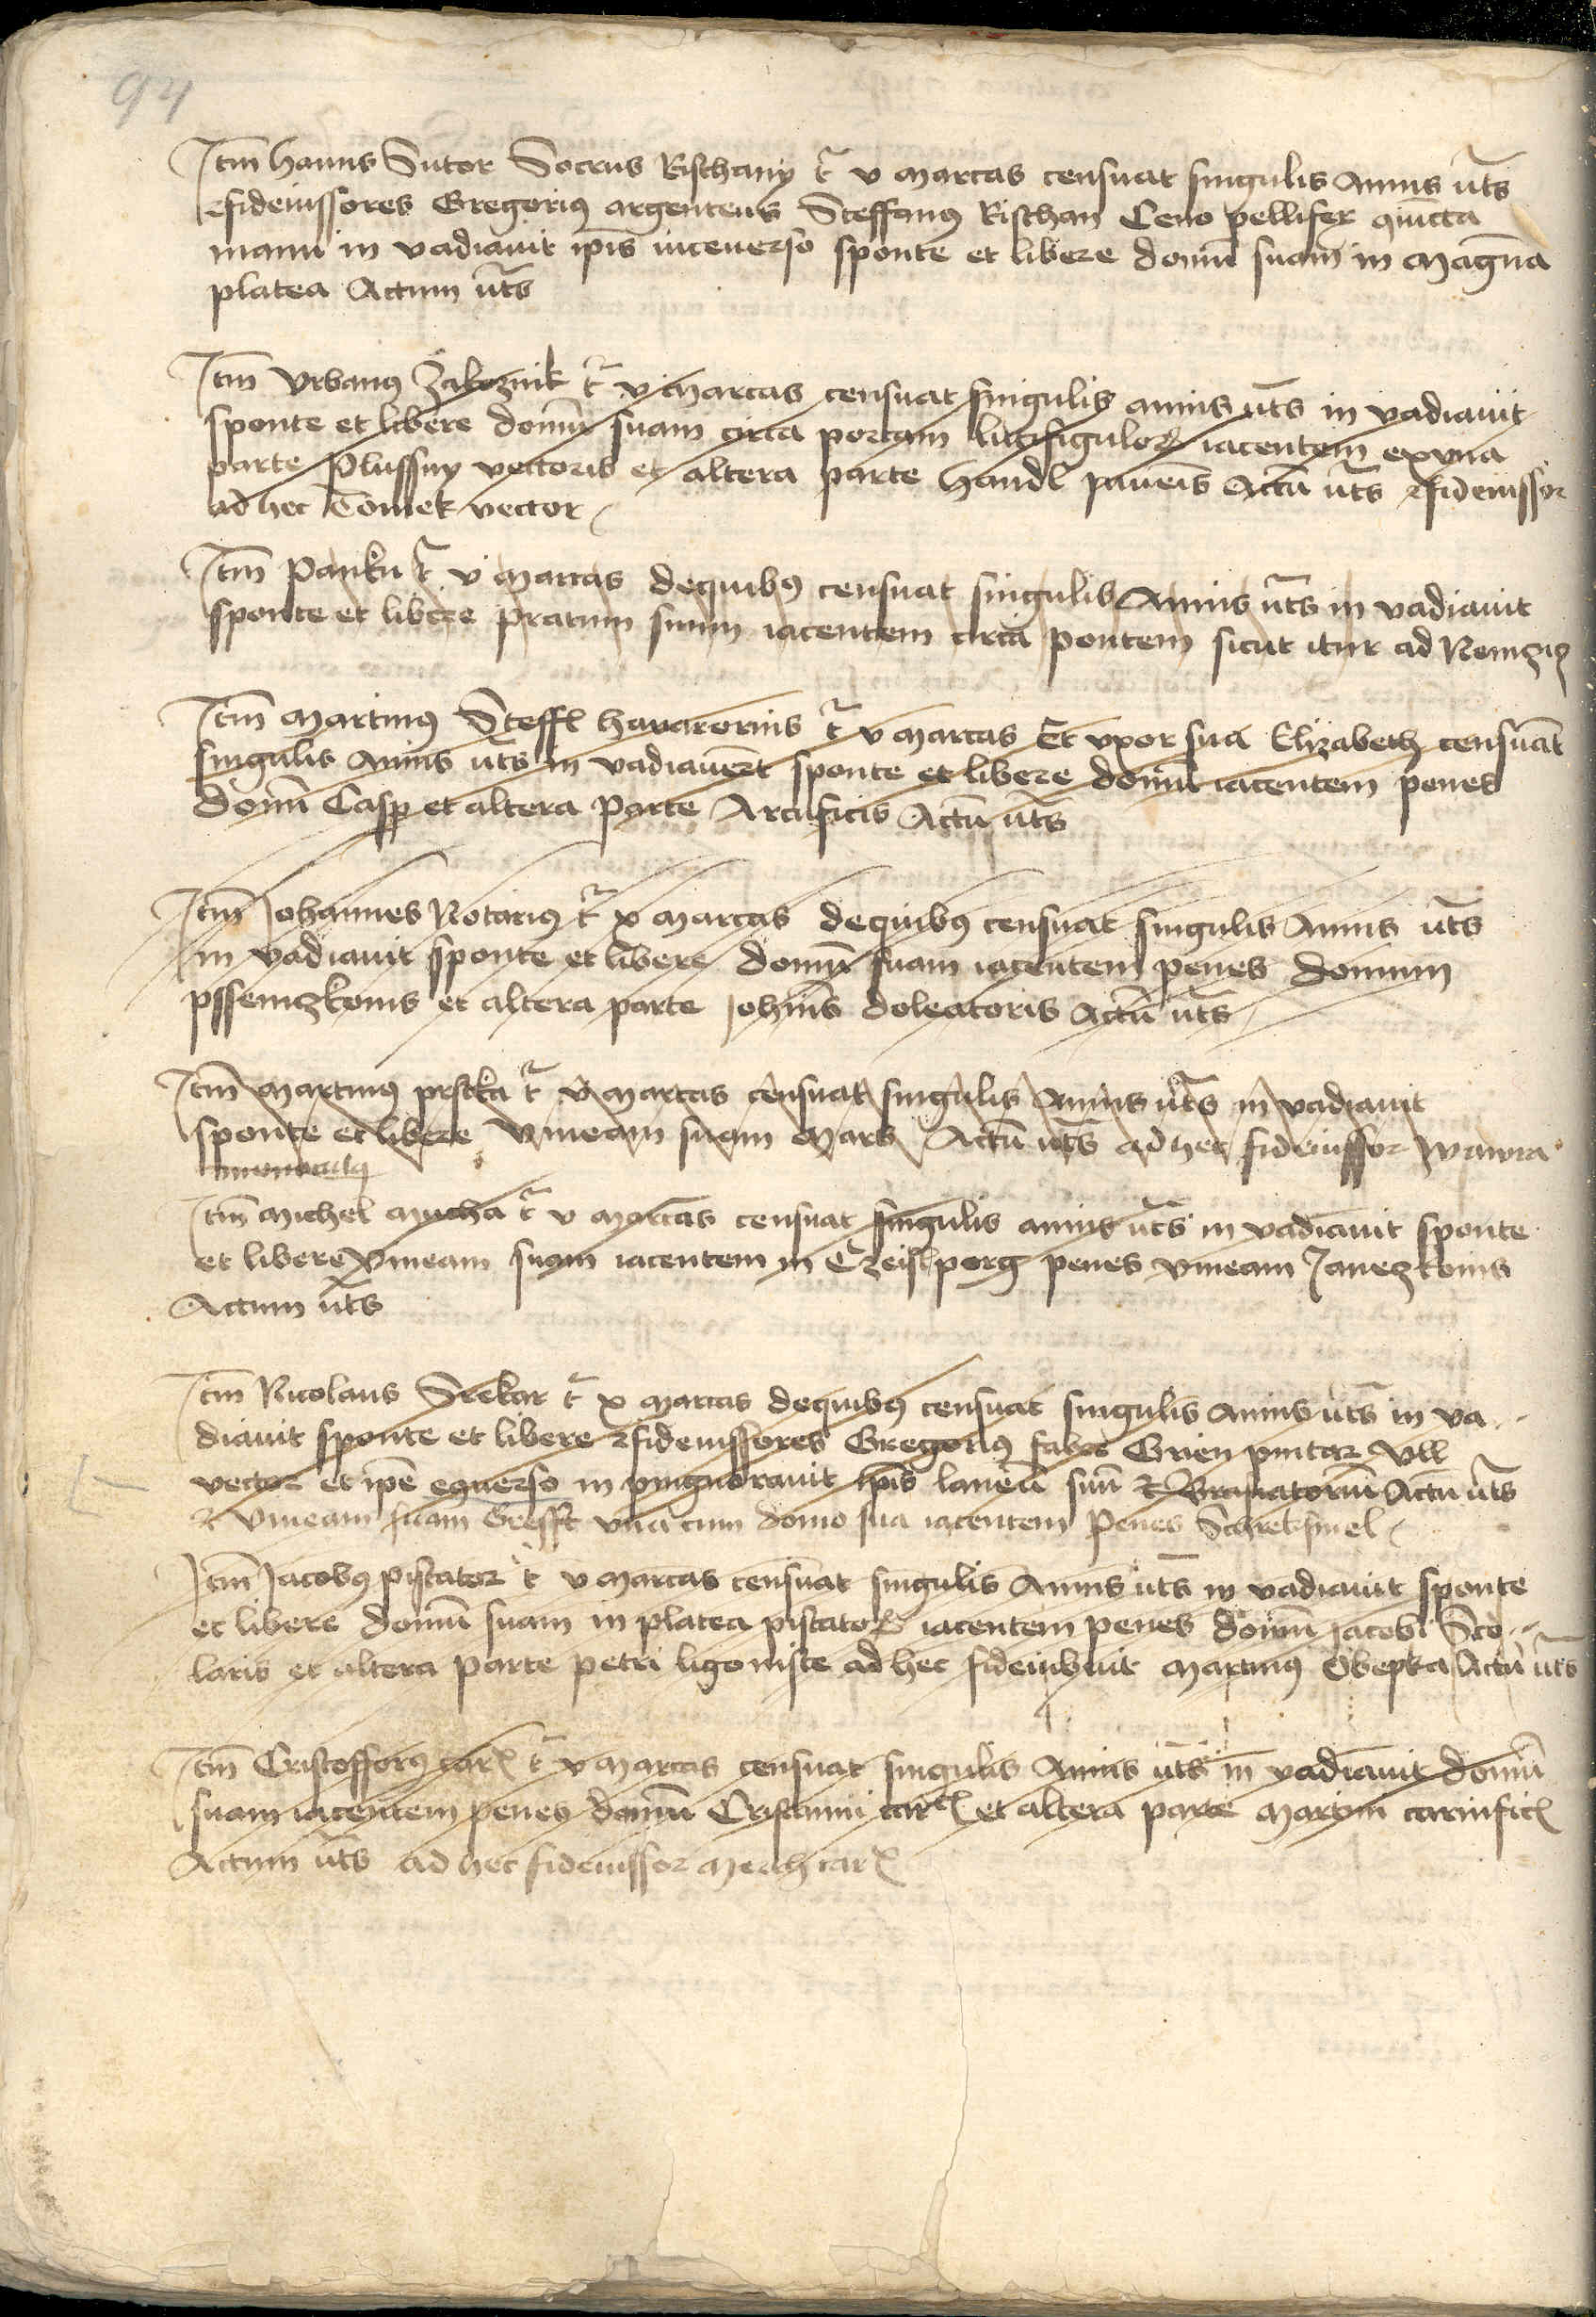 94
Itm̄ Hanns Sutor Socrus Rischany t̄ v marcas censuat singulis Annis ut̄s
fideiussores Gregorius argenteus Steffanus Rischan Ceno pellifex
manu in vadiauit ip̄is sponte et libere domū suam in magna
platea Actum ut̄s
Itm̄ Vrbanus Zaleznik t̄ v marcas censuat singulis annis ut̄s in vadiauit
sponte et libere domū suam circa portam iacentem ex vna
parte Plussny vectoris et altera parte Actū ut̄s fideiussor
ad hec Tomek vector
Itm̄ Panku t̄ v marcas de quibus censuat singulis Annis ut̄s in vadiauit
sponte et libere pratum suum iacentem circa pontem sicut itur ad
Itm̄ martinus Steffl t̄ v marcas Et vxor sua Elizabeth censuāt
singulis Annis ut̄s in vadiauer̄t sponte et libere domū iacentem penes
domū Casp et altera parte Arcuficis Actū ut̄s
Itm̄ Johannes Notarius t̄ x marcas de quibus censuat singulis Annis ut̄s
in vadiauit sponte et libere domū suam iacentem penes domum
pssemczkonis et altera parte Joh̄nis doleatoris Actū ut̄s
Itm̄ martinus prstka t̄ v marcas censuat singulis Annis ut̄s in vadiauit
sponte et libere vineam suam Actū ut̄s ad hec fideiussor wawra
Itm̄ michel mucha t̄ v marcas censuat singulis annis ut̄s in vadiauit sponte
et libere vineam suam iacentem in Czeislperg penes vineam Janeczkonis
Actum ut̄s
Itm̄ Nicolaus Srekar t̄ x marcas de quibus censuat singulis Annis ut̄s in va
diauit sponte et libere fideiussores Gregorius faber Grien pintar Vll
vector et ip̄e in pignorauit ip̄is laneū suū et Actū ut̄s
et vineam suam Grefft vna cum domo sua iacentem penes
Itm̄ Jacobus piscator t̄ v marcas censuat singulis Annis ut̄s in vadiauit sponte
et libere domū suam in platea piscatorꝝ iacentem penes domū Jacobi Sco
laris et altera parte petri ligoniste ad hec fideiubuit martinus Obepka Actū ut̄s
Itm̄ Cristofforus carͭ t̄ v marcas censuat singulis Annis ut̄s in vadiauit domū
suam iacentem penes domū Cristanni et altera parte martini carnific
Actum ut̄s ad hec fideiussor